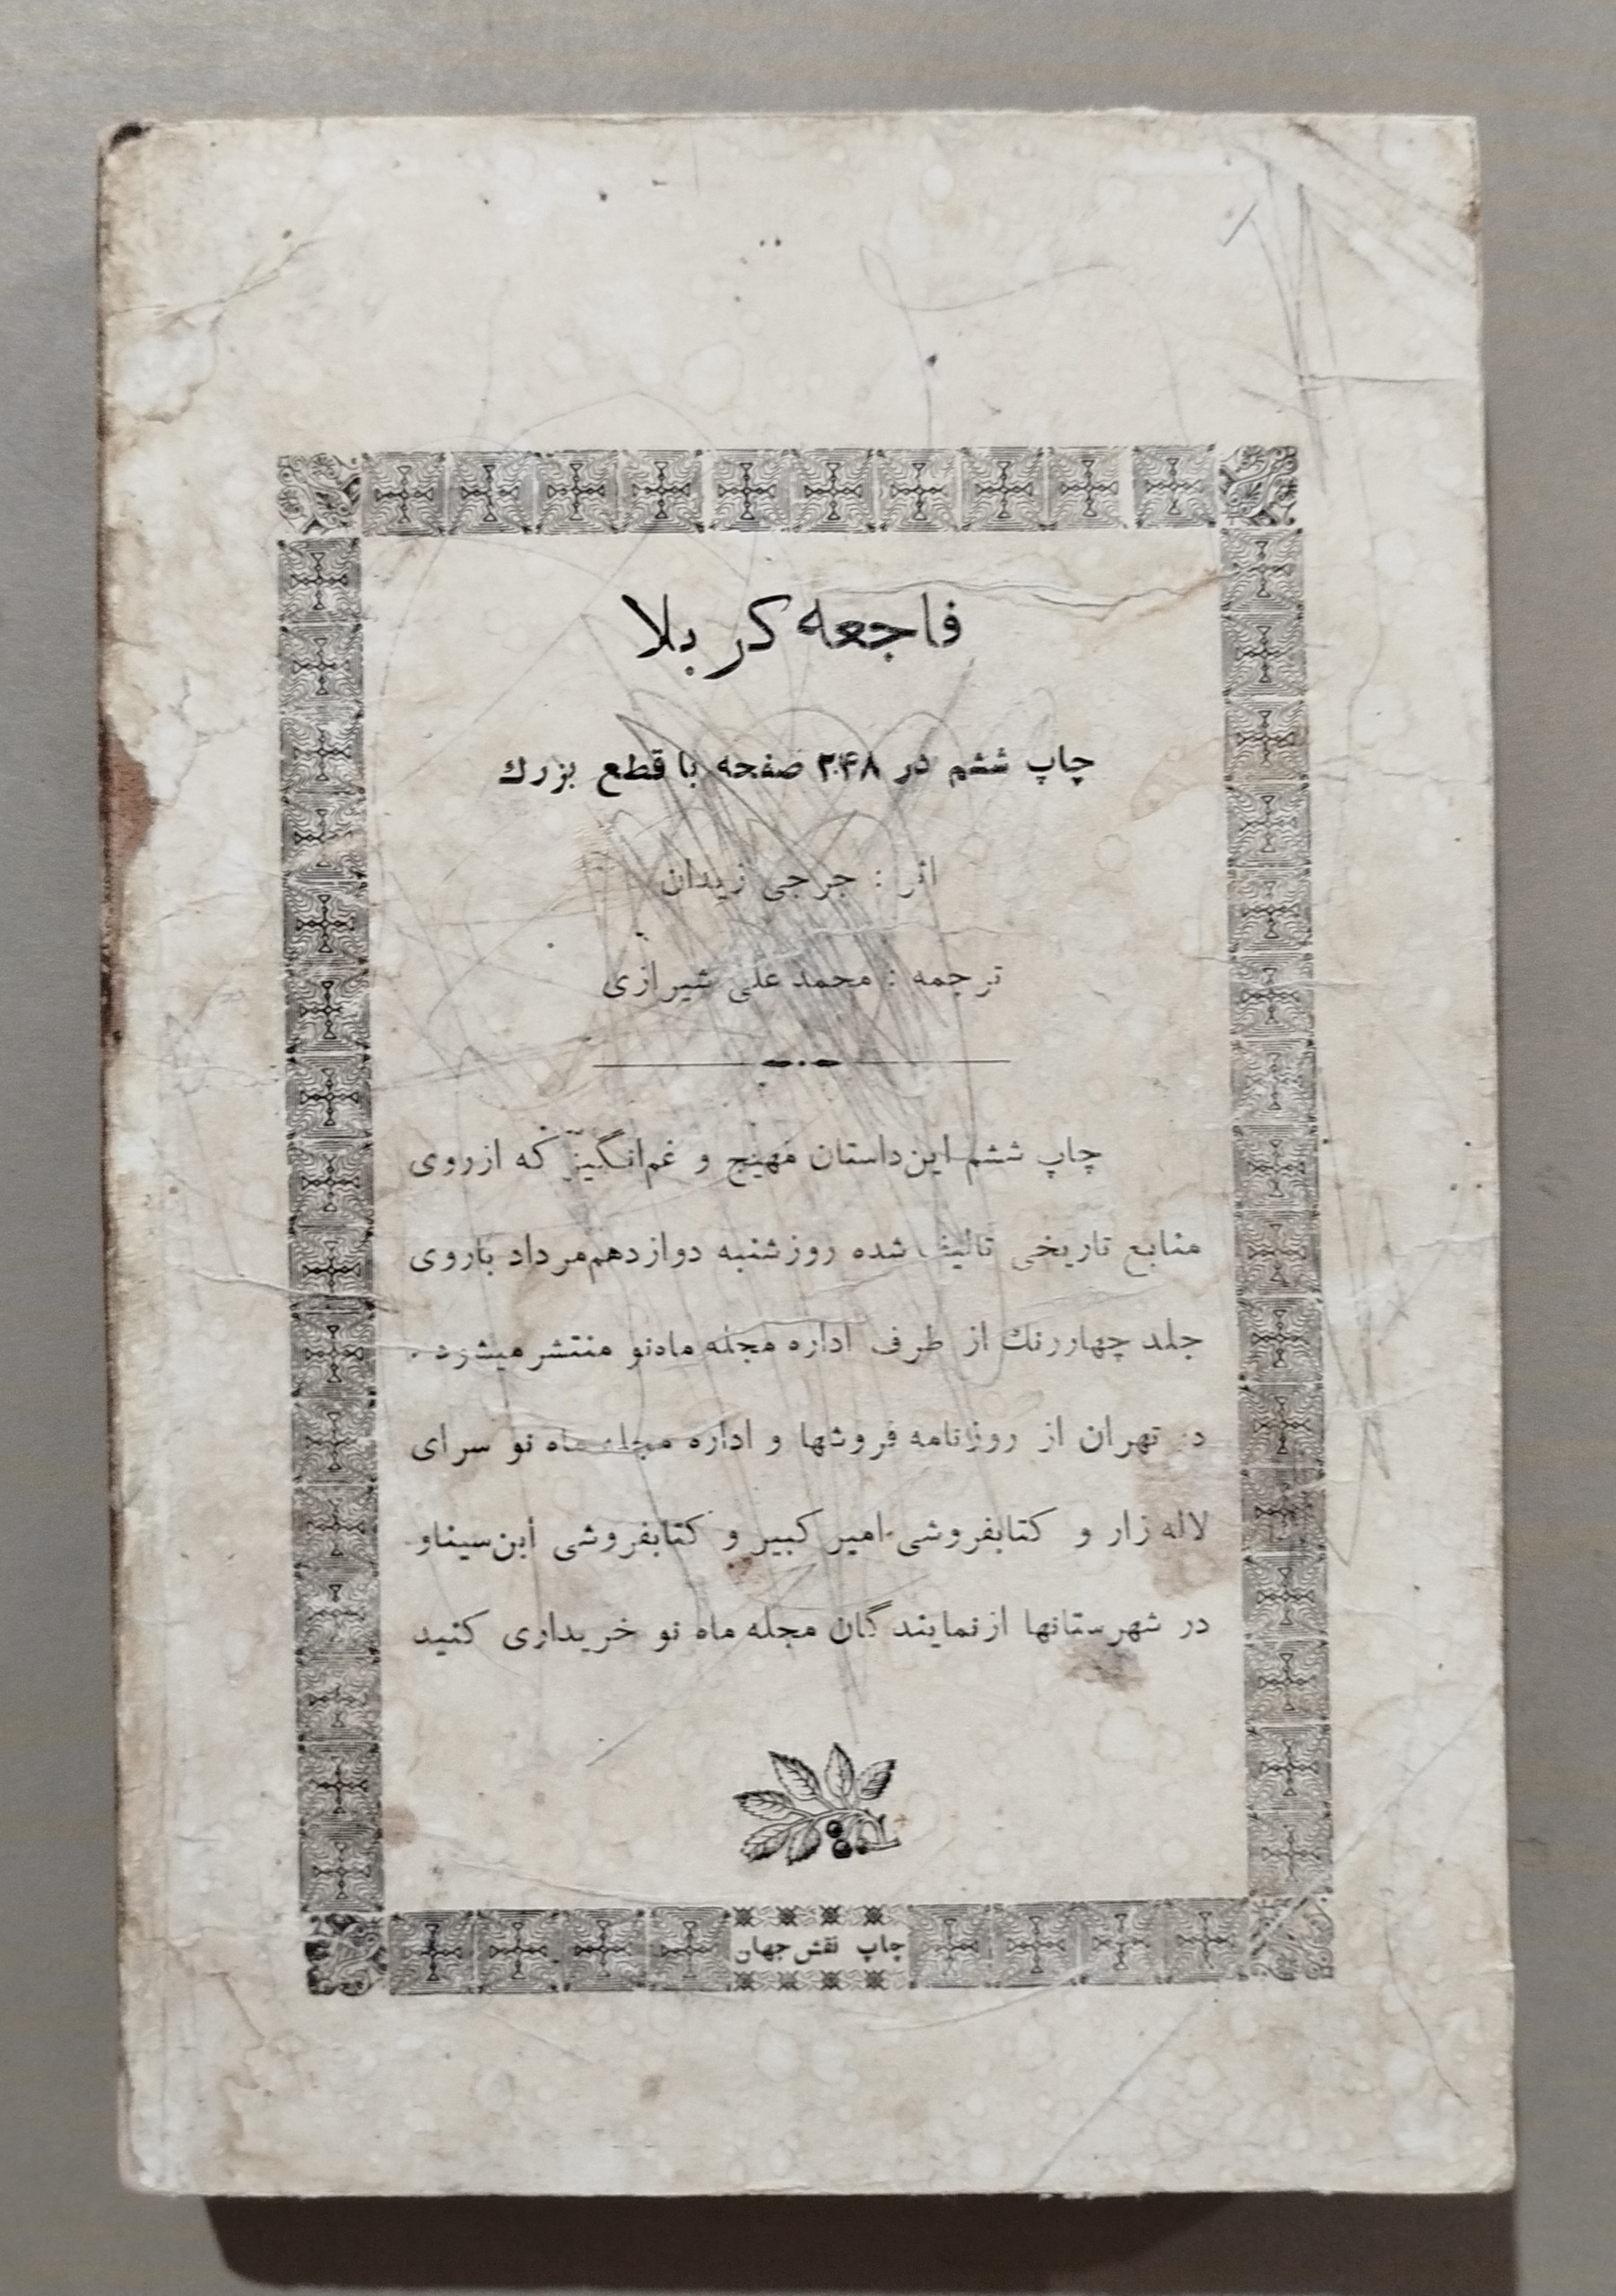 فاجعه کربلا
چاپ ششم در ۲۴۸ صفحه با قطع بزرك
اثر : جرجی زیدان
ترجمه : محمد علی شیرازی
چاپ ششم این داستان مهیج و غم‌انگیز که از روی
منابع تاریخی تالیف شده روز شنبه دوازدهم مرداد با روی
جلد چهار رنك از طرف اداره مجله ماه‌نو منتشر میشود .
در تهران از روزنامه فروشها و اداره مجله ماه نو سرای
لاله زار و کتابفروشی امیر کبیر و کتابفروشی ابن‌سینا و
در شهرستانها از نمایندگان مجله ماه نو خریداری کنید
چاپ نقش جهان